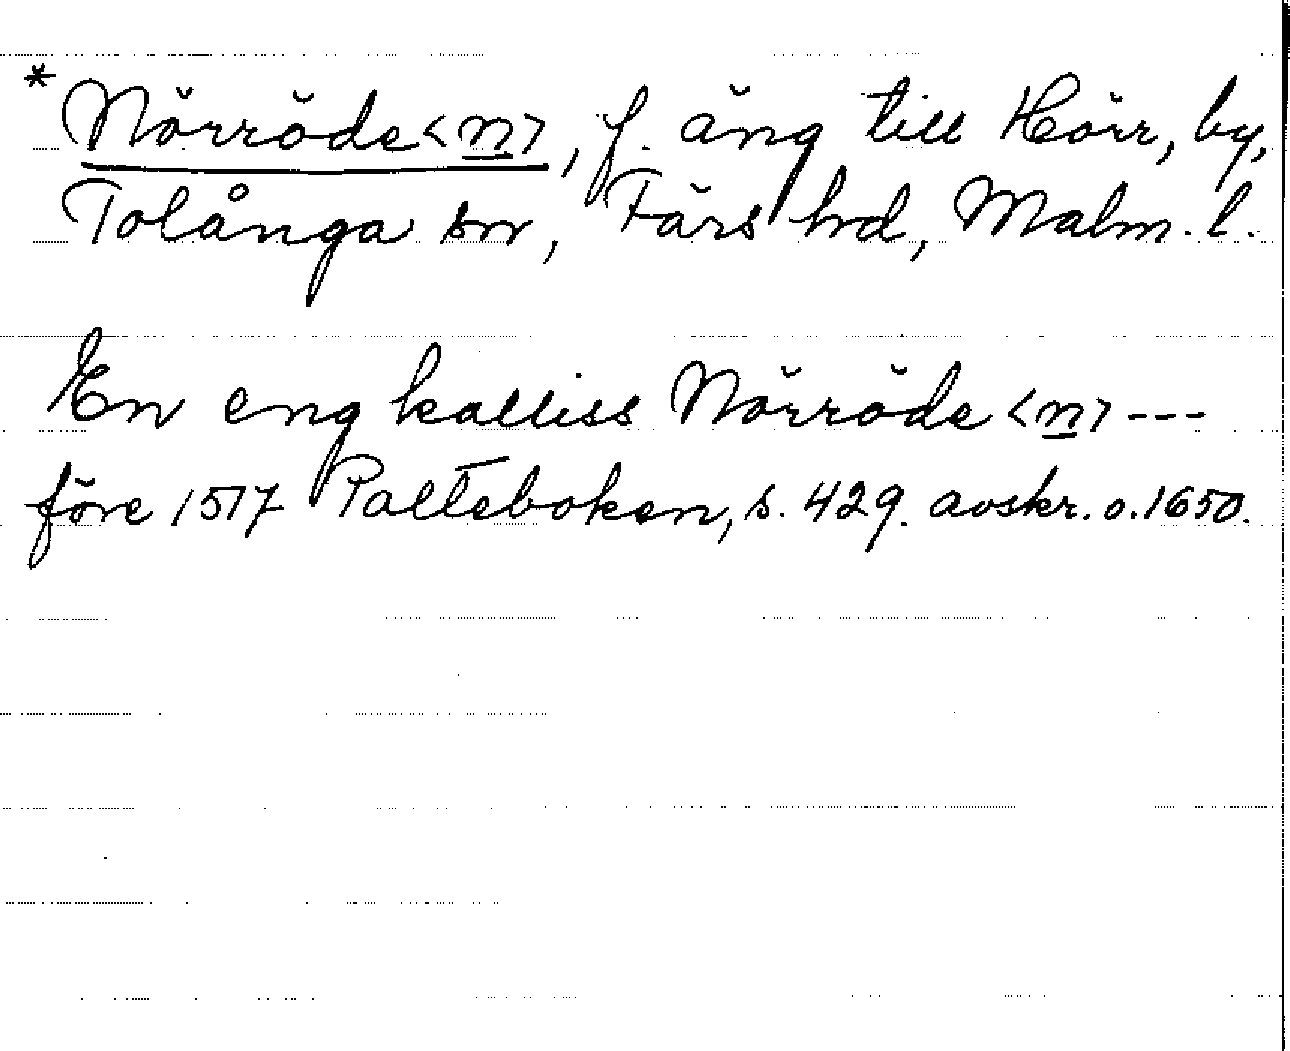 * Nörröde<n>, f. äng till Hörr, by,
Tolånga sn, Färs hd, Malm. l.
En eng kalliss Nörröde <n> ---
före 1517 Palteboken, s. 429. avskr. o. 1650.